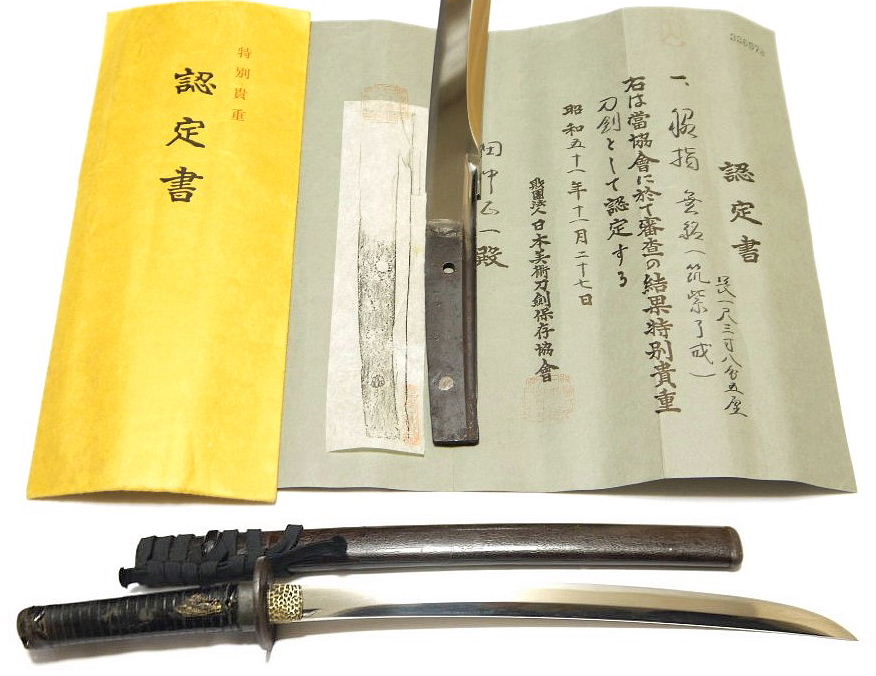 認定書
一、脇指 無銘(筑紫了戒)
長一尺三寸八分五厘
右は當協會に於て審査の結果特別貴重
刀剣として認定する
昭和五十一年十一月二十七日
財團法人日本美術刀劍保存協會
田中正一殿
特別貴重
認定書